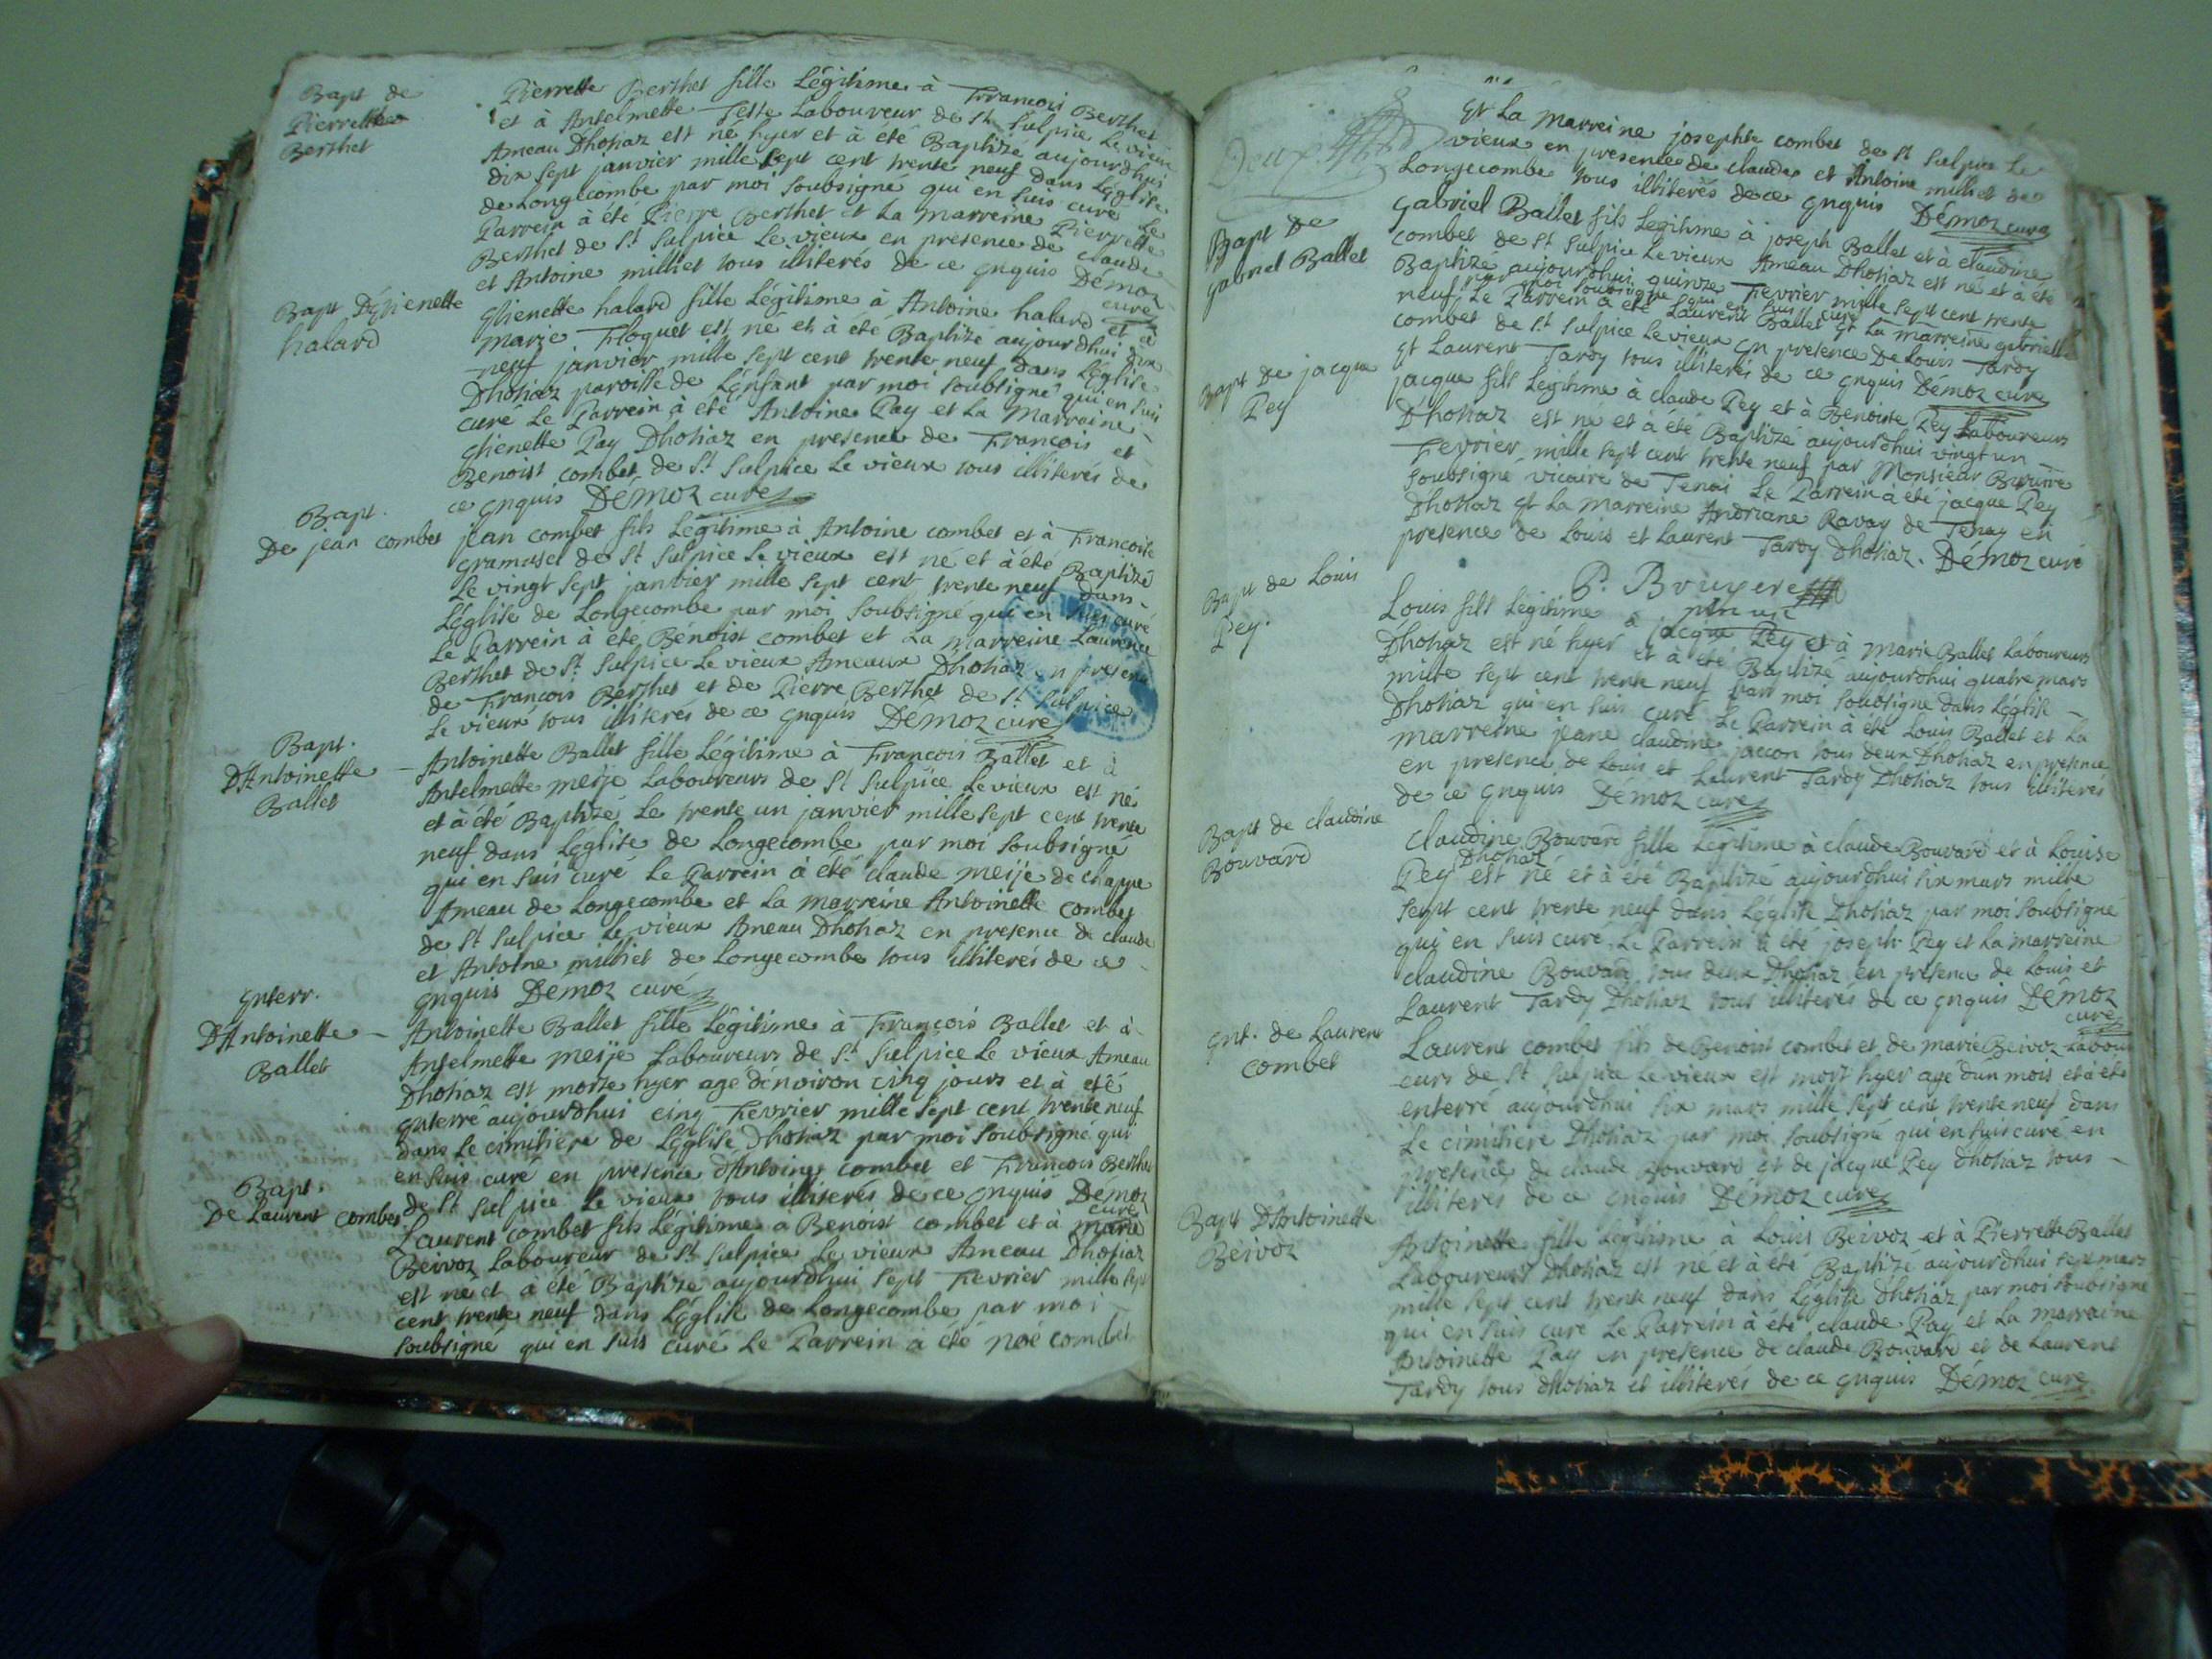 Bapt de
Pierrette
Berthet
Pierrette Berthet fille Légitime à Francois Berthet
et à Antelmette Teste Laboureur de St Sulpice Le vieux
Ameau Dhotiaz est né hyer et à été Baptizé aujourdhui
dix sept janvier mille sept cent trente neuf dans Léglise
de Longecombe par moi soubsigné qui en suis curé Le
Parrein à été Pierre Berthet et La marreine Pierrette
Berthet de St Sulpice Le vieux en presence de claude
et Antoine milliet tous illiterés de ce Enquis Démoz
curé
Bapt DEtienette
halard
Etienette halard fille Légitime à Antoine halard et à
Marie Floquet est né et à été Baptizé aujourdhui dix
neuf janvier mille sept cent trente neuf dans Léglise
Dhotiaz paroisse de Lenfant par moi soubsigné qui en suis
curé Le Parrein à été Antoine Pay et La Marraine
Etienette Pay Dhotiaz en presence de Francois et
Benoist combet de St Sulpice Le vieux tous illiterés de
ce Enquis Démoz curé
Bapt.
De jean combet
jean combet fils Légitime à Antoine combet et à Francoise
gramusel de St Sulpice Le vieux est né et à été Baptizé
Le vingt sept janvier mille sept cent trente neuf dans
Léglise de Longecombe par moi soubsigné qui en suis curé
Le Parrein à été Bénoist combet et La Marreine Laurence
Berthet de St Sulpice Le vieux Ameaux Dhotiaz en presence
de Francois Berthet et de Pierre Berthet de St Sulpice
Le vieux tous illiterés de ce Enquis Démoz curé
Bapt.
DAntoinette
Ballet
Antoinette Ballet fille Légitime à Francois Ballet et à
Antelmette meije Laboureurs de St Sulpice Le vieux est né
et à été Baptizé Le trente un janvier mille sept cent trente
neuf dans Léglise de Longecombe par moi soubsigné
qui en suis curé Le Parrein à été claude meije de chappe
Ameau de Longecombe et La marreine Antoinette combet
de St Sulpice Le vieux Ameau Dhotiaz en presence de claude
et Antoine milliet de Longecombe tous illiterés de ce
Enquis Démoz curé
Enterr.
DAntoinette
Ballet
Antoinette Ballet fille Légitime à François Ballet et à
Antelmette meije Laboureurs de St Sulpice Le vieux Ameau
Dhotiaz est morte hyer agé dénviron cinq jours et à eté
enterré aujourdhui cinq Fevrier mille sept cent trente neuf
dans Le cimitiere de Léglise Dhotiaz par moi soubsigné qui
en suis curé en presence dAntoine combet et Francois Berthet
de St Sulpice Le vieux tous illiterés de ce Enquis Démoz
curé
Bapt.
De Laurent combet
Laurent combet fils Légitime a Benoist combet et à marie
Beivoz Laboureur de St Sulpice Le vieux Ameau Dhotiaz
est né et à été Baptizé aujourdhui sept Fevrier mille sept
cent trente neuf dans Léglise de Longecombe par moi
soubsigné qui en suis curé Le Parrein a été noé combet
Deux
Et La Marreine josephte combet de St Sulpice Le
vieux en presence de claude et Antoine milliet de
Longecombe tous illiterés de ce Enquis Démoz curé
Bapt De
gabriel Ballet
Gabriel Ballet fils Legitime à joseph Ballet et à claudine
combet de St Sulpice Le vieux Ameau Dhotiaz est né et à été
Baptizé aujourdhui quinze Fevrier mille sept cent trente
par moi soubsigné qui en suis curé
neuf Le Parrein à été Laurent Ballet Et La marreine gabrielle
combet de St Sulpice Le vieux En presence De Louis Tardy
Et Laurent Tardy tous illiterés de ce Enquis Démoz curé
Bapt De jacque
Pey
jacque fils Legitime à claude Pey et à Benoiste Pey Laboureurs
Dhotiaz est né et à été Baptizé aujourdhui vingt un
Fevrier mille sept cent trente neuf par Monsieur
soubsigné vicaire de Tenai Le Parrein a été jacque Pey
Dhotiaz Et La marreine Andriane Ravay de Tenay en
presence de Louis et Laurent Tardy Dhotiaz. Démoz curé
P. Bruyere
Bapt de Louis
Pey.
Louis fils Legitime à jacque Pey et à Marie Ballet Laboureurs
Dhotiaz est né hyer et à été Baptizé aujourdhui quatre mars
mille sept cent trente neuf par moi soubsigné dans Léglise
Dhotiaz qui en suis curé Le Parrein à été Louis Ballet et La
marreine jeane claudine jaccon tous deux Dhotiaz en presence
en presence de Louis et Laurent Tardy Dhotiaz tous illiterés
de ce Enquis Démoz curé
Bapt de claudine
Bouvard
claudine Bouvard fille Légitime à claude Bouvard et à Louise
Dhotiaz
Pey est né et à été Baptizé aujourdhui six mars mille
sept cent trente neuf dans Léglise Dhotiaz par moi soubsigné
qui en suis curé Le Parrein à été joseph Pey et La marreine
claudine Bouvard tous deux Dhotiaz en presence de Louis et
Laurent Tardy Dhotiaz tous illiterés de ce Enquis Démoz
curé
Ent. de Laurent
combet
Laurent combet fils de Benoist combet et de marie Beivoz Labour
eurs de St Sulpice Le vieux est mort hyer agé dun mois et à été
enterré aujourdhui six mars mille sept cent trente neuf dans
Le cimitiere Dhotiaz par moi soubsigné qui en suis curé en
presence de claude Bouvard et de jacque Pey Dhotiaz tous
illiterés de ce Enquis Démoz curé
Bapt DAntoinette
Beivoz
Antoinette fille Légitime à Louis Beivoz et à Pierrette Ballet
Laboureurs Dhotiaz est né et à été Baptizé aujourdhui sept mars
mille sept cent trente neuf dans Léglise Dhotiaz par moi soubsigné
qui en suis curé Le Parrein à été claude Pay et La marraine
Antoinette Pay en presence de claude Bouvard et de Laurent
Tardy tous dhotiaz et illiterés de ce Enquis Démoz curé